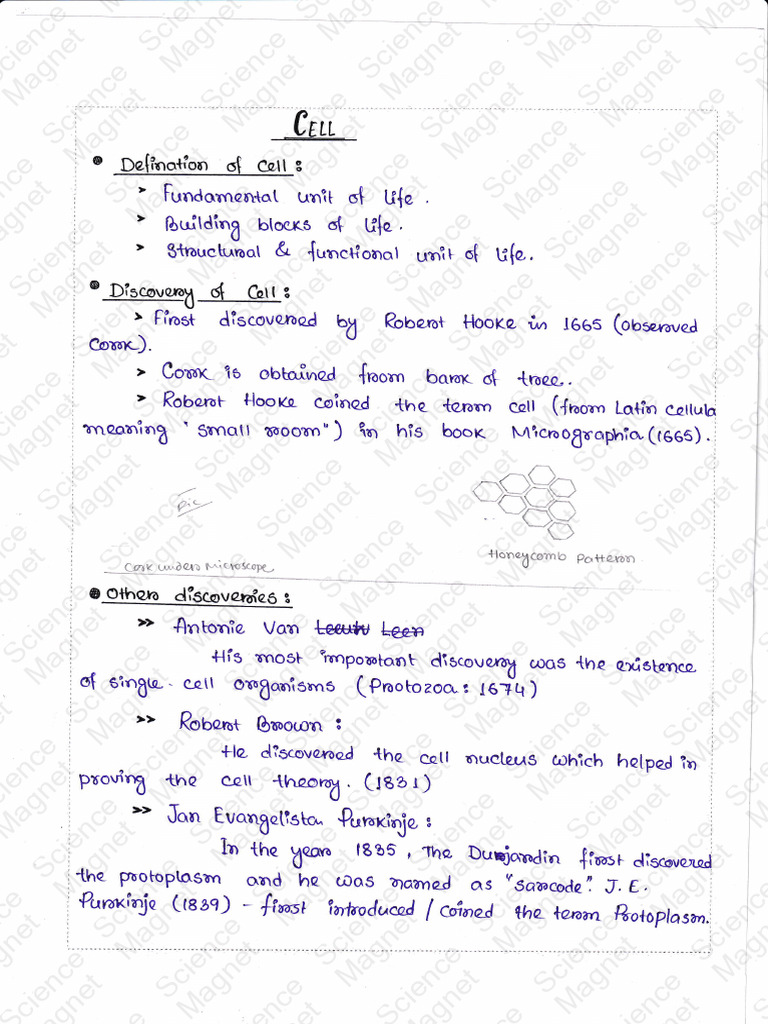 CELL
Defination of cell:
> Fundamental unit of life.
> Building blocks of life.
> Structural & functional unit of life.
Discovery of Cell:
> First discovered by Robert Hooke in 1665 (observed
Cork).
> Cork is obtained from bark of tree.
> Robert Hooke coined the term cell (from Latin cellula
meaning "small room") in his book Micrographia (1665).
Pic
Cork under Microscope
Honeycomb Pattern
Other discoveries:
>> Antonie Van Leeuw Leen
His most important discovery was the existence
of single-cell organisms (Protozoa: 1674)
>> Robert Brown:
He discovered the cell nucleus which helped in
proving the cell theory. (1831)
>> Jan Evangelista Purkinje:
In the year 1835, The Durjardin first discovered
the protoplasm and he was named as "sarcode". J.E.
Purkinje (1839) - first introduced / coined the term Protoplasm.
Science Magnet